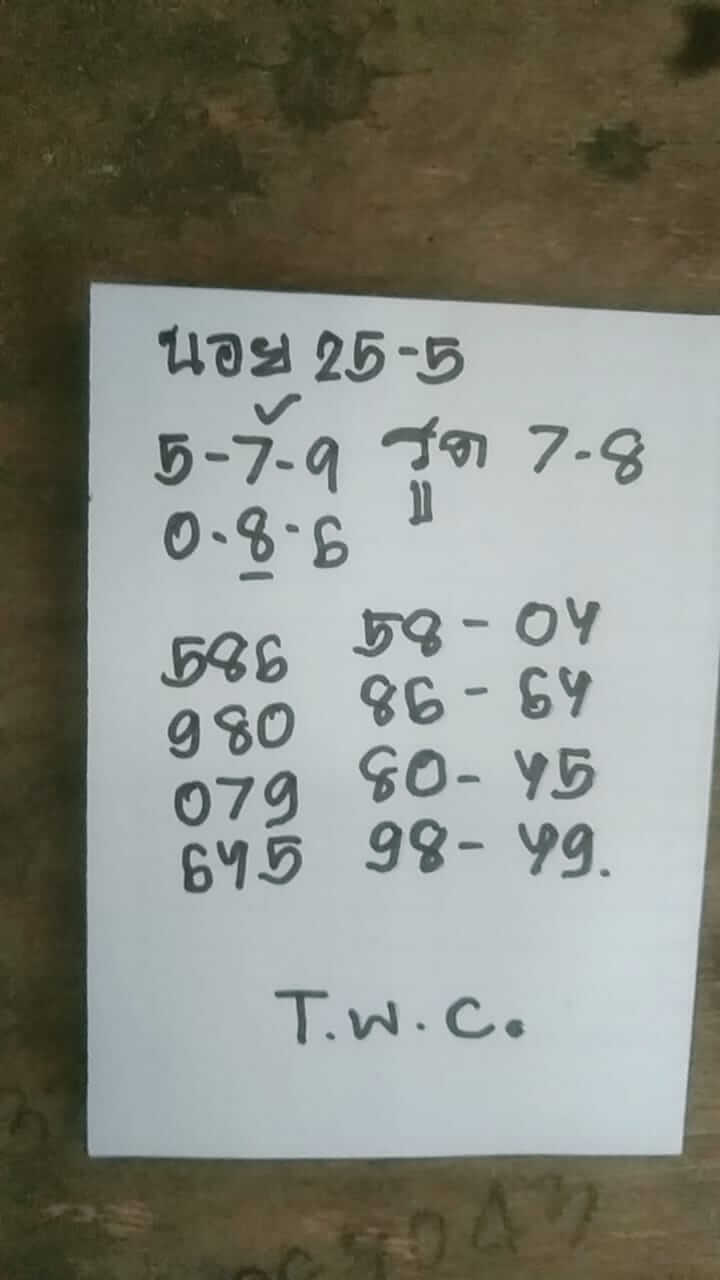 นอย 25-5
5-7-9 รูด 7-8
0-8-6
586 58 - 04
980 86 - 64
079 80 - 45
645 98 - 49.
T.W.C.